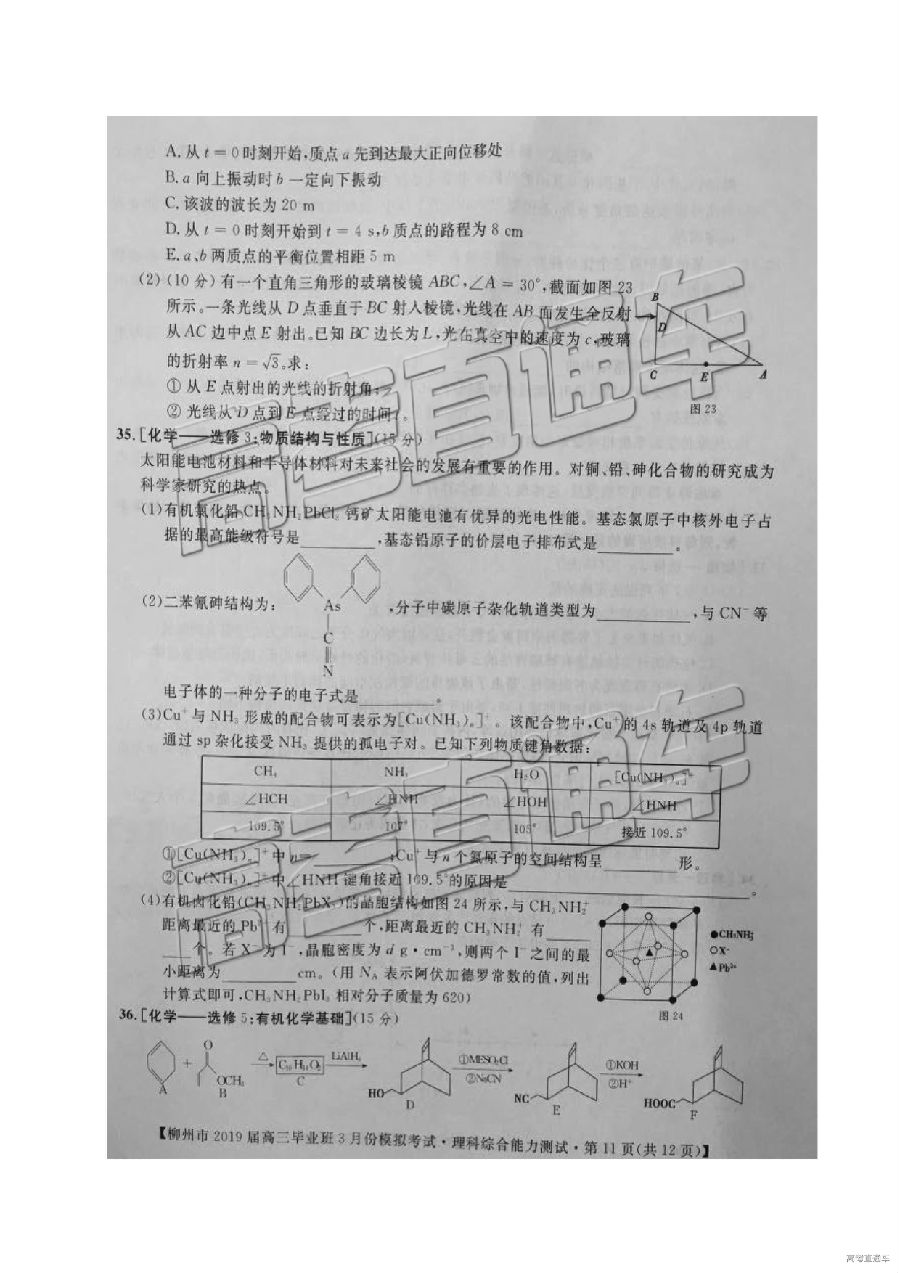 A.从 t = 0 时刻开始,质点 a 先到达最大正向位移处
B.a 向上振动时 b 一定向下振动
C.该波的波长为 20 m
D.从 t = 0 时刻开始到 t = 4 s,b 质点的路程为 8 cm
E.a、b 两质点的平衡位置相距 5 m
(2)(10 分)有一个直角三角形的玻璃棱镜 ABC,∠A = 30°,截面如图 23
所示。一条光线从 D 点垂直于 BC 射入棱镜,光线在 AB 面发生全反射
从 AC 边中点 E 射出。已知 BC 边长为 L,光在真空中的速度为 c,玻璃
的折射率 n = √3。求:
① 从 E 点射出的光线的折射角
② 光线从 D 点到 E 点经过的时间
B
D
C
E
A
图 23
35.[化学——选修 3:物质结构与性质](15 分)
太阳能电池材料和半导体材料对未来社会的发展有重要的作用。对铜、铅、砷化合物的研究成为
科学家研究的热点。
(1)有机氯化铅CH₃NH₃PbCl₃钙矿太阳能电池有优异的光电性能。基态氯原子中核外电子占
据的最高能级符号是________,基态铅原子的价层电子排布式是________。
(2)二苯氰砷结构为:
As
C
N
,分子中碳原子杂化轨道类型为________,与 CN⁻ 等
电子体的一种分子的电子式是________。
(3)Cu⁺与 NH₃ 形成的配合物可表示为[Cu(NH₃)ₙ]⁺。该配合物中,Cu⁺的 4s 轨道及 4p 轨道
通过 sp 杂化接受 NH₃ 提供的孤电子对。已知下列物质键角数据:
CH₄ NH₃ H₂O [Cu(NH₃)ₙ]⁺
∠HCH ∠HNH ∠HOH ∠HNH
109.5° 107° 105° 接近 109.5°
①[Cu(NH₃)ₙ]⁺中 n=________;Cu⁺与 n 个氮原子的空间结构呈________形。
②[Cu(NH₃)ₙ]⁺中∠HNH 键角接近 109.5°的原因是________________。
(4)有机卤化铅(CH₃NH₃PbX₃)的晶胞结构如图 24 所示,与 CH₃NH₃⁺
距离最近的 Pb²⁺有________个,距离最近的 CH₃NH₃⁺ 有
____个。若 X⁻为 I⁻,晶胞密度为 d g·cm⁻³,则两个 I⁻ 之间的最
小距离为________cm。(用 Nₐ 表示阿伏加德罗常数的值,列出
计算式即可,CH₃NH₃PbI₃ 相对分子质量为 620)
●CH₃NH₃⁺
○X⁻
▲Pb²⁺
图 24
36.[化学——选修 5:有机化学基础](15 分)
A
+
O
OCH₃
B
△
C₁₀H₁₄O₂
C
LiAlH₄
HO
D
①MESO₂Cl
②NaCN
NC
E
①KOH
②H⁺
HOOC
F
【柳州市 2019 届高三毕业班 3 月份模拟考试·理科综合能力测试·第 11 页(共 12 页)】
高考直通车
高考直通车
高考直通车